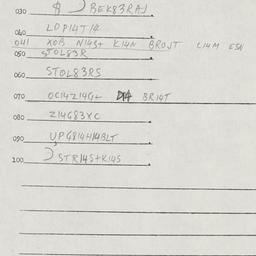 030 $ ) BEK83RAJ
040 LDP14T/R
041 XOB N14S+ K14N BROJT C14M ESN
050 STOL83R
060 STOL83RS
070 OC14Z14G+ BR14T
080 Z14G83XC
090 UPG814H14BLT
100 ) STR14S+K14S